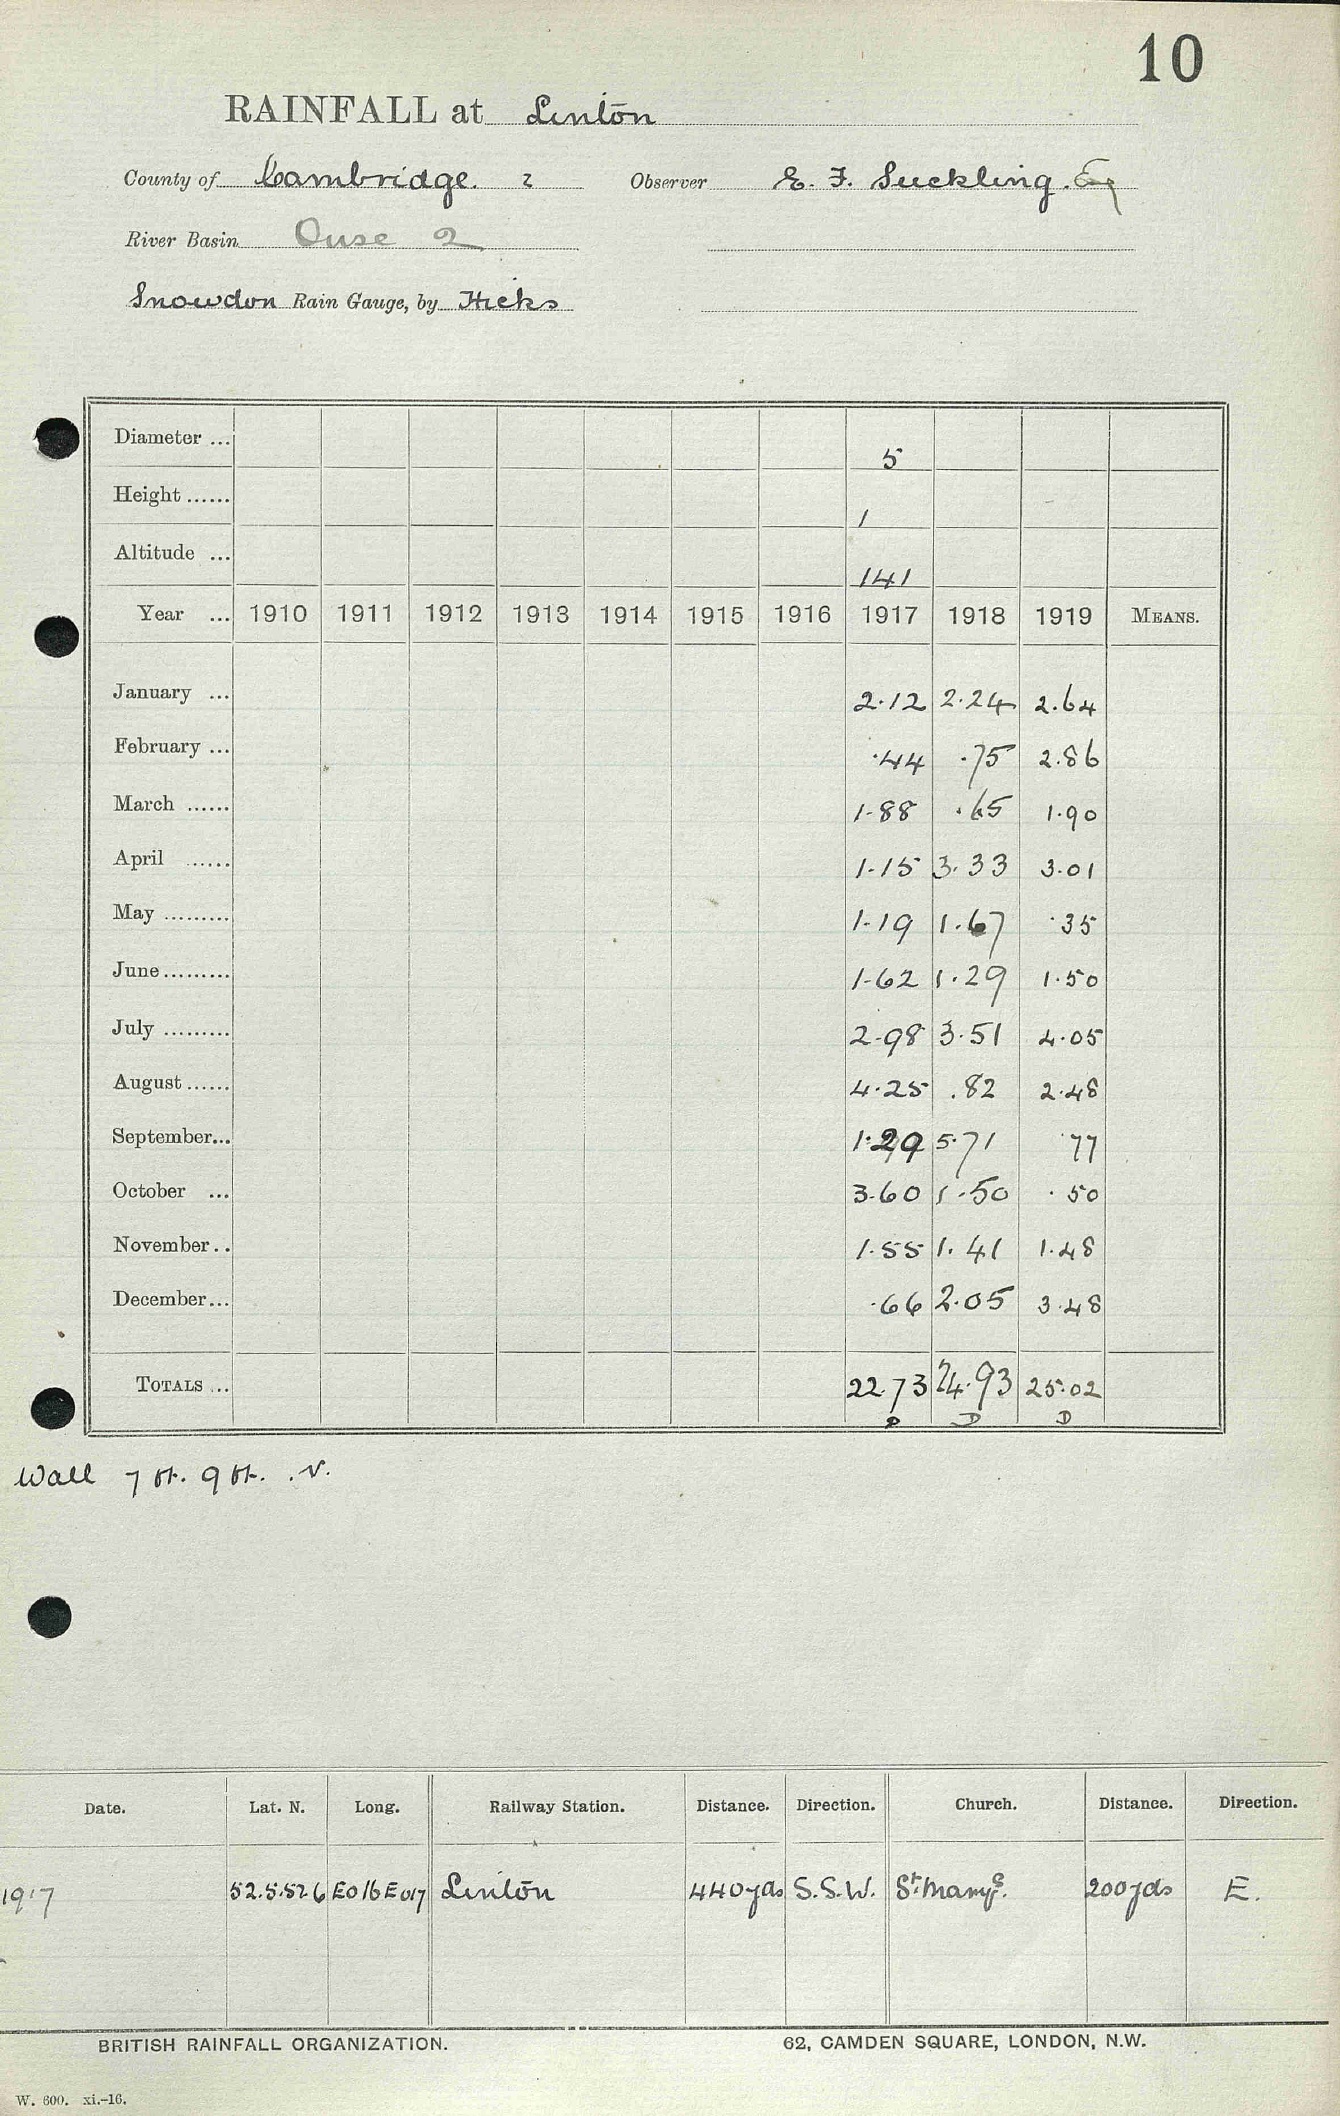 10
RAINFALL at Linton
County of Cambridge. 2 Observer E. F. Suckling. Esq
River Basin Ouse 2
Snowdon Rain Gauge, by Hicks
Diameter ... 5
Height ...... 1
Altitude ... 141
Year ... 1910 1911 1912 1913 1914 1915 1916 1917 1918 1919 MEANS.
January ... 2.12 2.24 2.64
February ... .44 .75 2.86
March ...... 1.88 .65 1.90
April ...... 1.15 3.33 3.01
May ......... 1.19 1.67 .35
June ......... 1.62 1.29 1.50
July ......... 2.98 3.51 4.05
August ...... 4.25 .82 2.48
September... 1.29 5.71 .77
October ... 3.60 1.50 .50
November.. 1.55 1.41 1.48
December... .66 2.05 3.48
TOTALS ... 22.73 24.93 25.02
D D D
Wall 7 ft. 9 ft. N.
Date. Lat. N. Long. Railway Station. Distance. Direction. Church. Distance. Direction.
1917 52.5.52.6 E016E017 Linton 440yds S.S.W. St Mary's. 200yds E.
BRITISH RAINFALL ORGANIZATION. 62, CAMDEN SQUARE, LONDON, N.W.
W. 600. xi.-16.